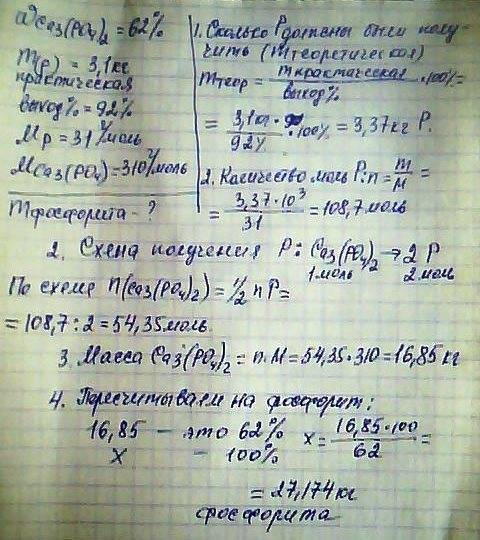 ωCa3(PO4)2 = 62%
m(P) = 3,1 кг
практическая
выход% = 92%
Mр = 31 г/моль
MCa3(PO4) = 310 г/моль
mфосфорита - ?
1. Сколько P должны были полу-
чить (m теоретическая)
mтеор = mпрактическая / выход% · 100% =
= 3,1кг / 92% · 100% = 3,37кг P.
2. Количество моль P: n = m/M =
= 3,37·10³ / 31 = 108,7 моль
2. Схема получения P: Ca3(PO4)2 → 2 P
1 моль 2 моль
По схеме n(Ca3(PO4)2) = 1/2 n P =
= 108,7 : 2 = 54,35 моль.
3. Масса Ca3(PO4)2 = n·M = 54,35·310 = 16,85 кг
4. Пересчитываем на фосфорит:
16,85 — это 62% x = 16,85·100 / 62 =
x – 100%
= 27,174 кг
фосфорита